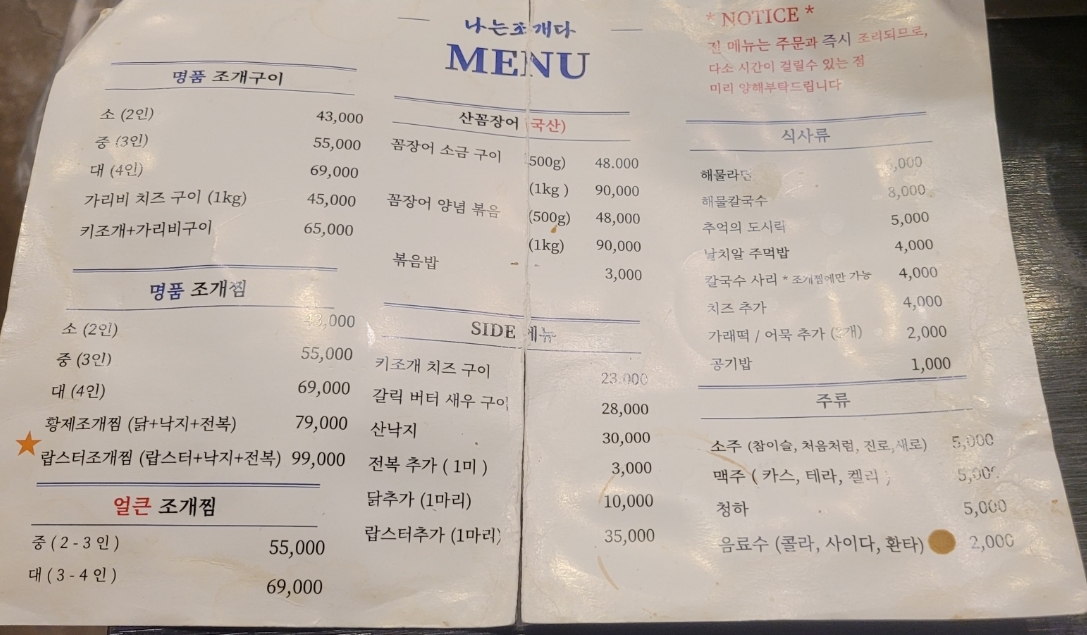 나는조개다
MENU
명품 조개구이
소 (2인) 43,000
중 (3인) 55,000
대 (4인) 69,000
가리비 치즈 구이 (1kg) 45,000
키조개+가리비구이 65,000
명품 조개찜
소 (2인)
중 (3인) 55,000
대 (4인) 69,000
황제조개찜 (닭+낙지+전복) 79,000
랍스터조개찜 (랍스터+낙지+전복) 99,000
얼큰 조개찜
중 ( 2 - 3 인 ) 55,000
대 ( 3 - 4 인 ) 69,000
산꼼장어 (국산)
꼼장어 소금 구이 (500g) 48.000
(1kg ) 90,000
꼼장어 양념 볶음 (500g) 48,000
(1kg) 90,000
볶음밥 3,000
SIDE 메뉴
키조개 치즈 구이 23.000
갈릭 버터 새우 구이 28,000
산낙지 30,000
전복 추가 ( 1미 ) 3,000
닭추가 (1마리) 10,000
랍스터추가 (1마리) 35,000
* NOTICE *
전 메뉴는 주문과 즉시 조리되므로,
다소 시간이 걸릴수 있는 점
미리 양해부탁드립니다
식사류
해물라면
해물칼국수 8,000
추억의 도시락 5,000
날치알 주먹밥 4,000
칼국수 사리 * 조개찜에만 가능 4,000
치즈 추가 4,000
가래떡 / 어묵 추가 2,000
공기밥 1,000
주류
소주 (참이슬, 처음처럼, 진로,새로) 5,000
맥주 ( 카스, 테라, 켈리 ) 5,000
청하 5,000
음료수 (콜라, 사이다, 환타) 2,000